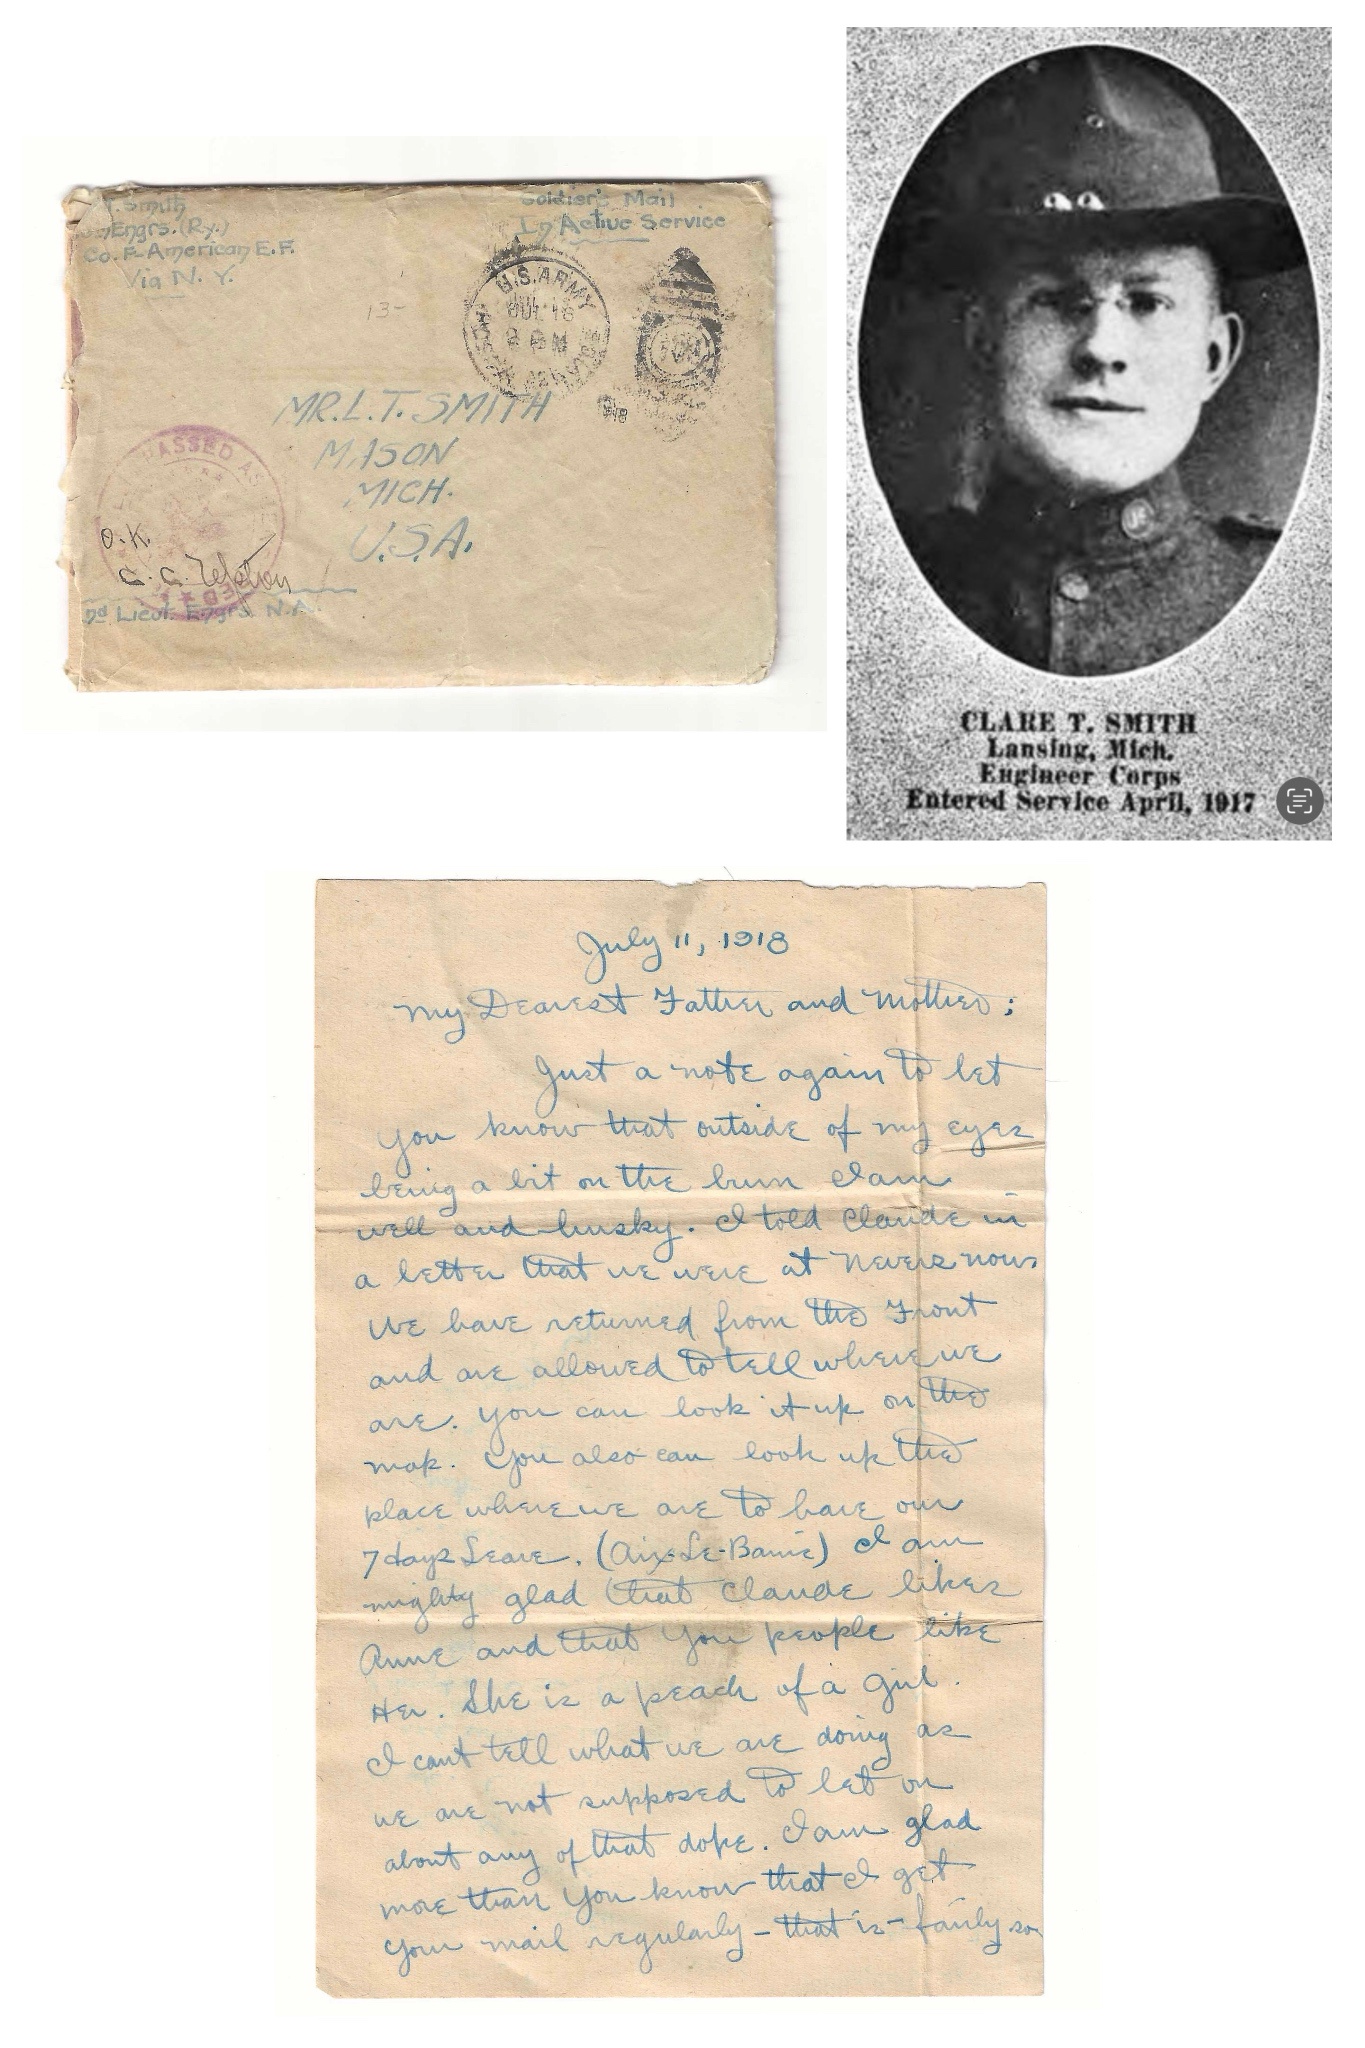 T. Smith
Engrs. (Ry.)
Co. F- American E.F.
Via N. Y.
Soldier's Mail
In Active Service
13-
U.S. ARMY
JUL 16
MR. L. T. SMITH
MASON
MICH.
U.S.A.
PASSED AS
O.K.
C. C.
nd Lieut. Engrs. N.A.
CLARE T. SMITH
Lansing, Mich.
Engineer Corps
Entered Service April, 1917
July 11, 1918
My Dearest Father and Mother;
Just a note again to let
you know that outside of my eyes
being a bit on the bum I am
well and husky. I told Claude in
a letter that we were at Nevers now
We have returned from the Front
and are allowed to tell where we
are. You can look it up on the
map. You also can look up the
place where we are to have our
7 days Leave. (Aix-Le-Bains) I am
mighty glad that Claude likes
Anne and that you people like
Her. She is a peach of a girl.
I cant tell what we are doing as
we are not supposed to let on
about any of that dope. I am glad
more than you know that I get
your mail regularly - that is - fairly so